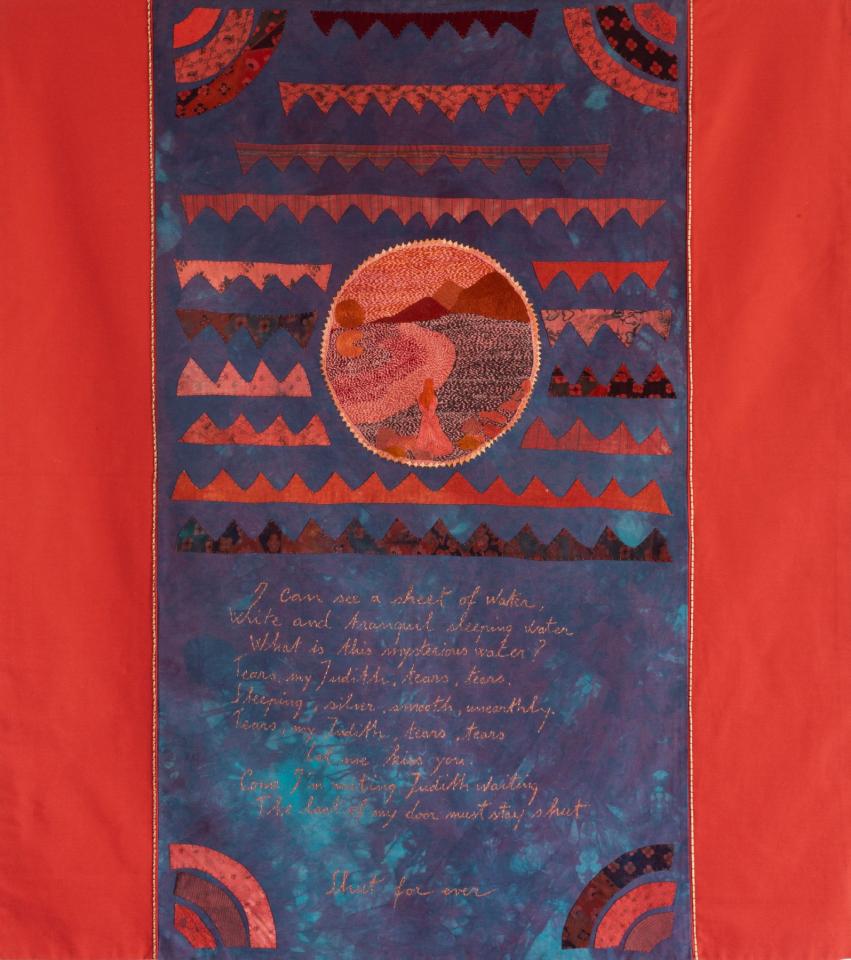 I can see a sheet of water,
White and tranquil sleeping water
What is this mysterious water?
Tears, my Judith, tears, tears.
Sleeping, silver, smooth, unearthly.
Tears, my Judith, tears, tears
Let me kiss you.
Come I'm waiting Judith waiting
The last of my door must stay shut
Shut for ever